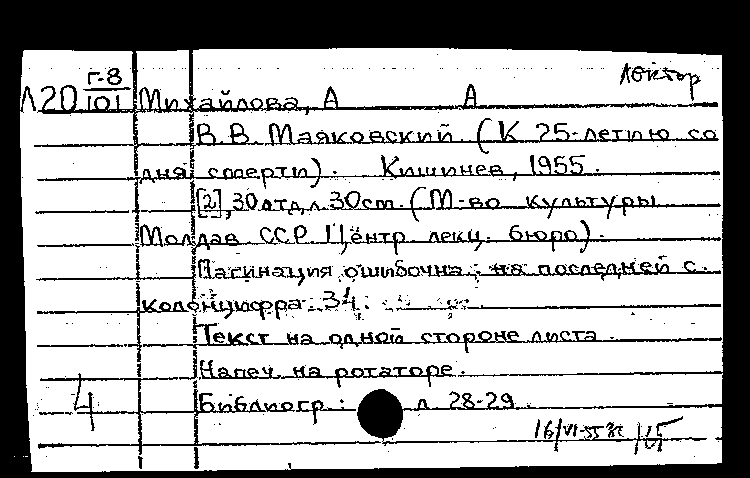 лектор
Л20 Г-8/101 Михайлова, А А
В. В. Маяковский. (К 25-летию со
дня смерти). Кишинев, 1955.
[2], 30 отд. л. 30 см. (М-во культуры
Молдав. ССР. Центр. лекц. бюро).
Пагинация ошибочна: на последней с.
колонцифра: 34.
Текст на одной стороне листа.
Напеч. на ротаторе.
4 Библиогр.: л. 28-29